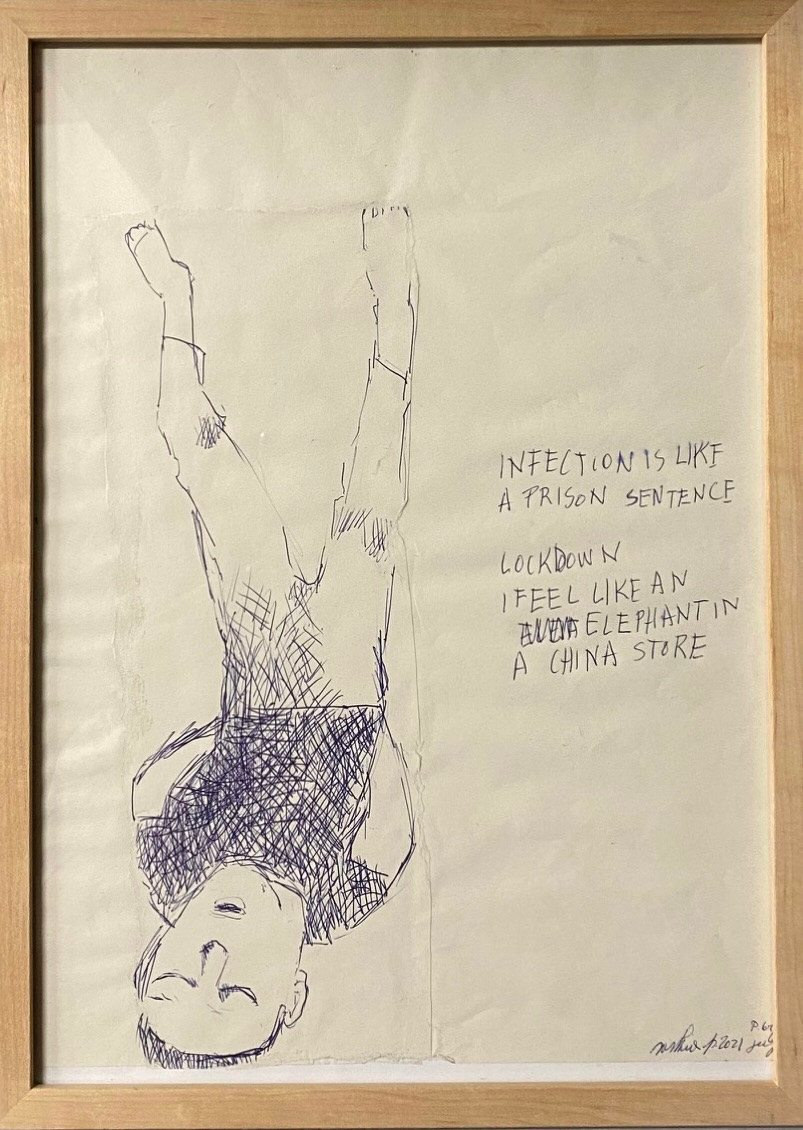 INFECTION IS LIKE
A PRISON SENTENCE
LOCKDOWN
I FEEL LIKE AN
ELEPHANT IN
A CHINA STORE
2021